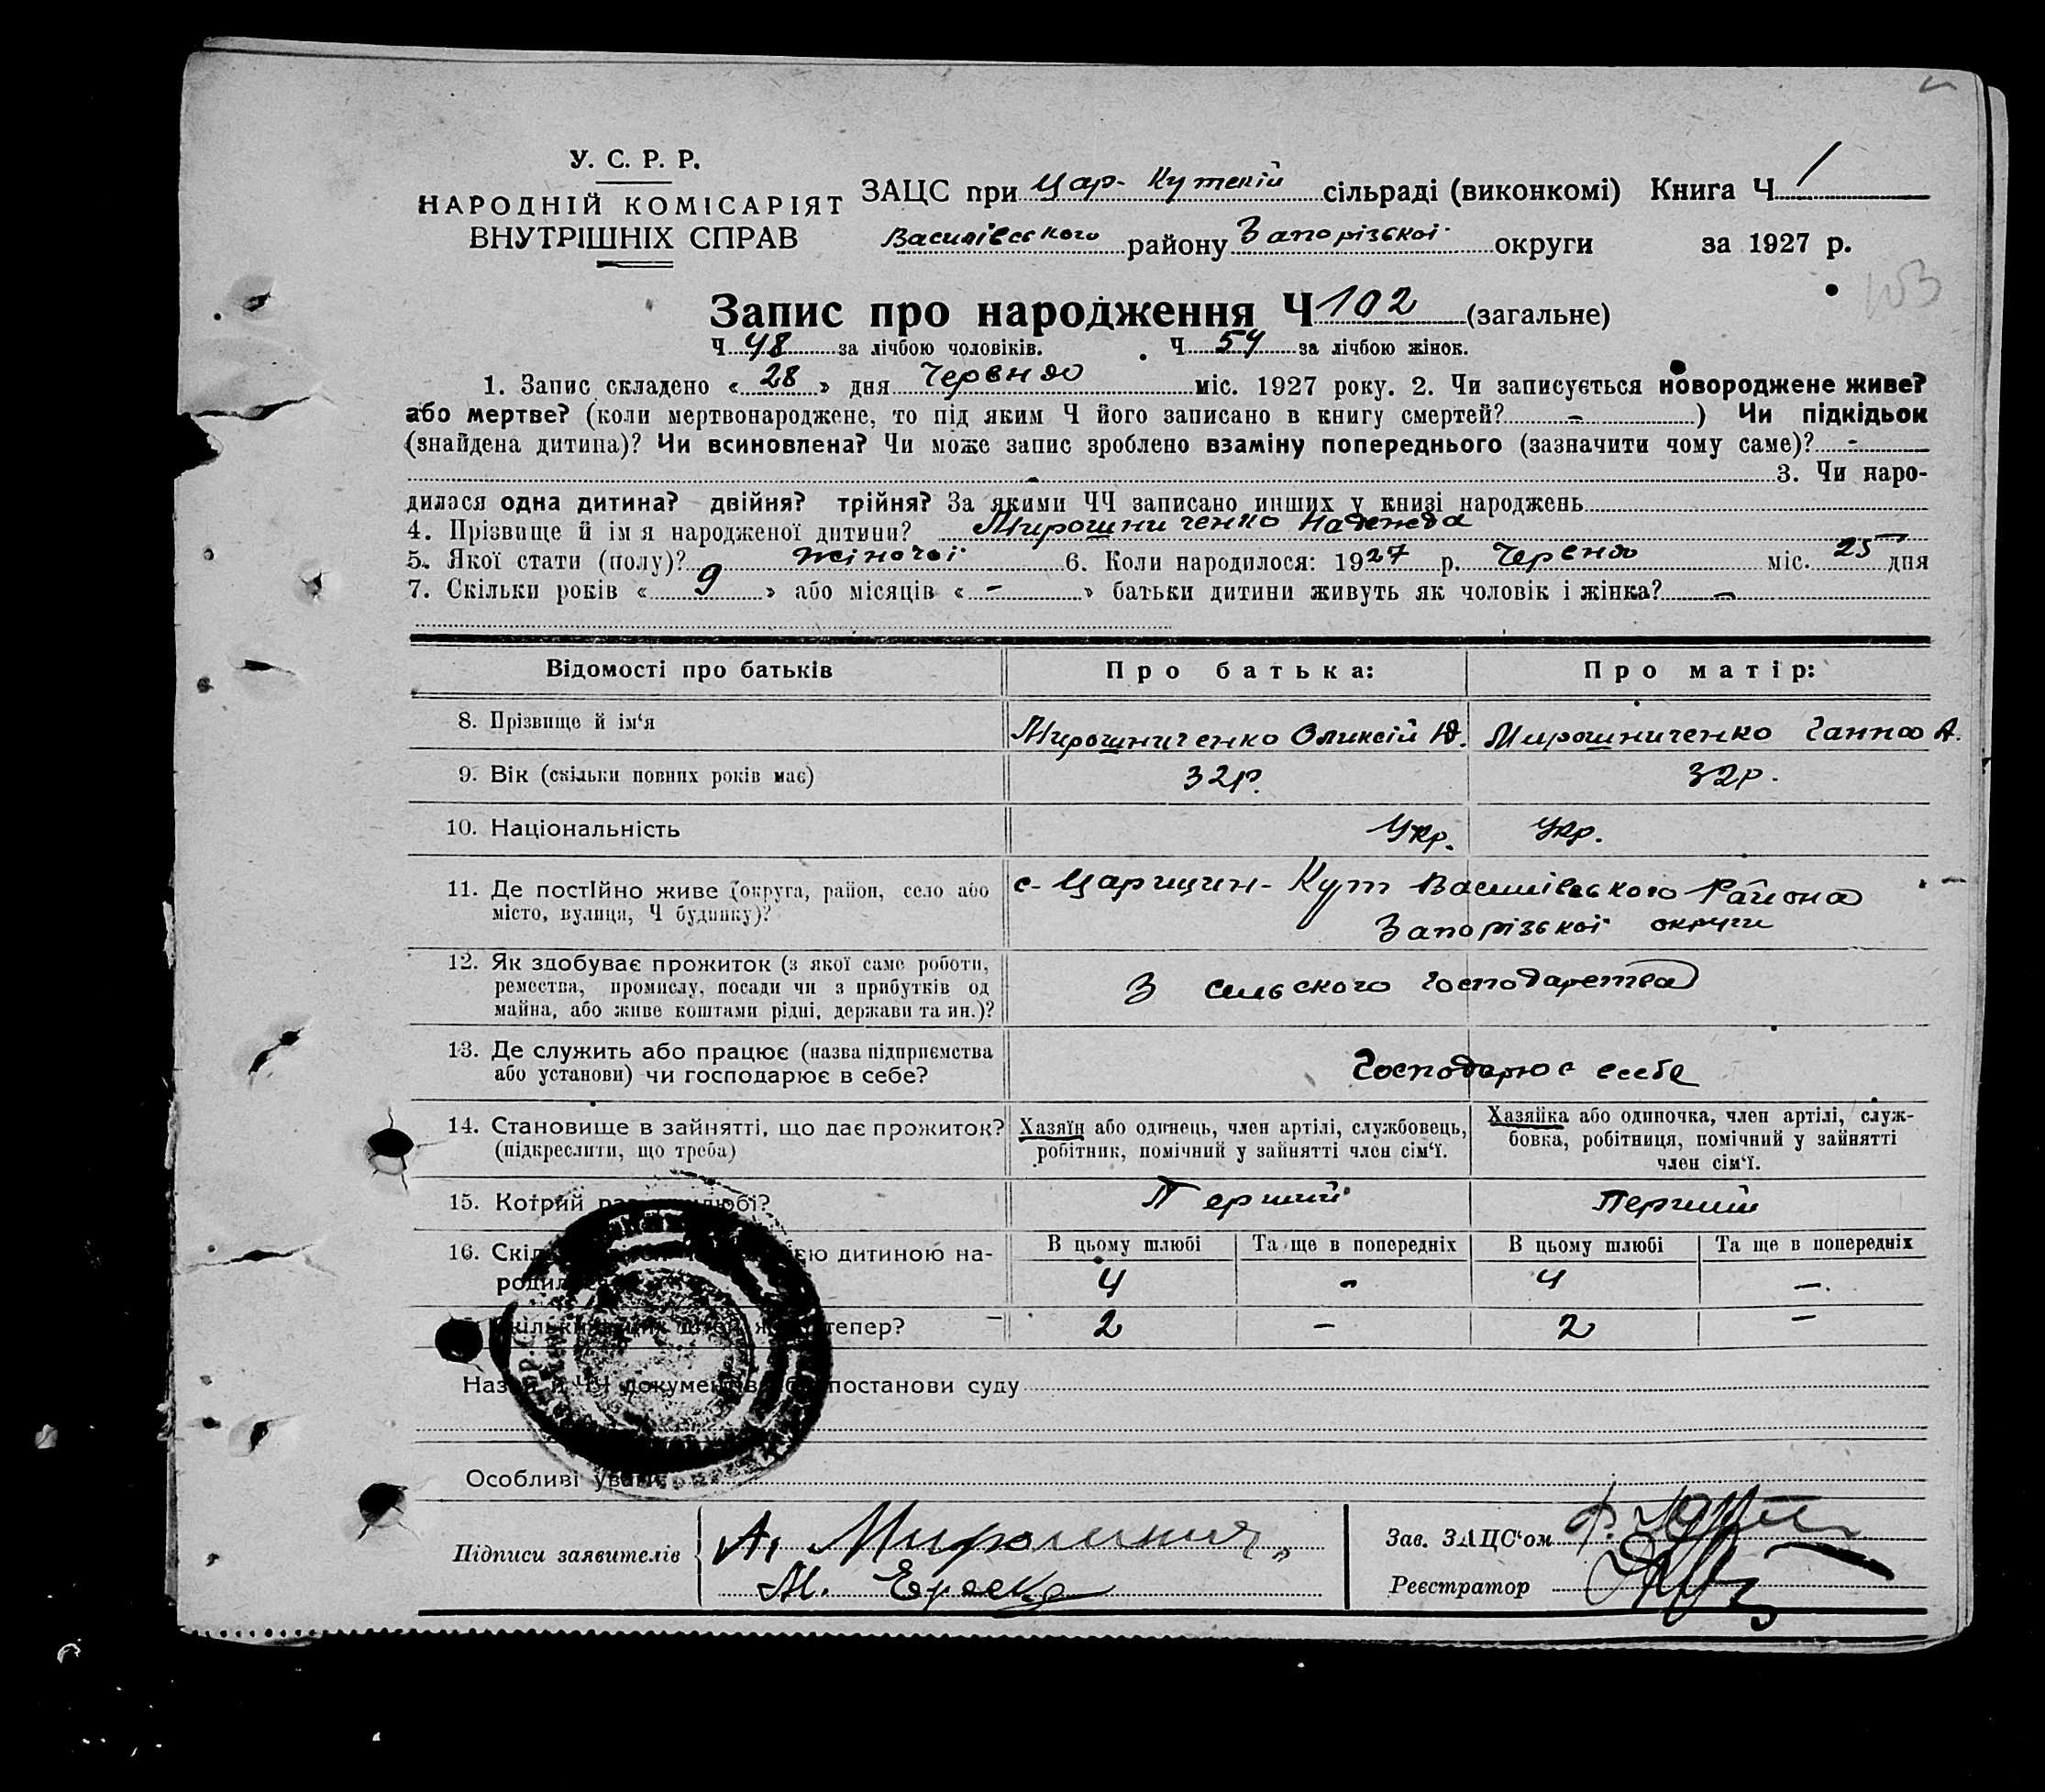 У. С. Р. Р.
НАРОДНІЙ КОМІСАРІЯТ
ВНУТРІШНІХ СПРАВ
ЗАЦС при Цар-Кутскій сільраді (виконкомі) Книга Ч 1
Василівського району Запорізької округи за 1927 р.
103
Запис про народження Ч 102 (загальне)
Ч 48 за лічбою чоловіків. Ч 54 за лічбою жінок.
1. Запис складено «28» дня Червня міс. 1927 року. 2. Чи записується новороджене живе?
або мертве? (коли мертвонароджене, то під яким Ч його записано в книгу смертей? -) Чи підкідьок
(знайдена дитина)? Чи всиновлена? Чи може запис зроблено взаміну попереднього (зазначити чому саме)? -
- 3. Чи наро-
дилася одна дитина? двійня? трійня? За якими ЧЧ записано инших у книзі народжень
4. Прізвище й ім я народженої дитини? Мирошниченко Надежда
5. Якої стати (полу)? жіночої 6. Коли народилося: 1927 р. Червня міс. 25 дня
7. Скільки років «9» або місяців «-» батьки дитини живуть як чоловік і жінка? -
Відомості про батьків Про батька: Про матір:
8. Прізвище й ім‘я Мирошниченко Олексій Ю. Мирошниченко Ганна А.
9. Вік (скільки повних років має) 32р. 32р.
10. Національність Укр. Укр.
11. Де постІйно живе (округа, район, село або с-Царицин-Кут Василівського Района
місто, вулиця, Ч будинку)? Запорізької округи
12. Як здобуває прожиток (з якої саме роботи,
ремества, промислу, посади чи з прибутків од З сельского господарства
майна, або живе коштами рідні, держави та ин.)?
13. Де служить або працює (назва підприємства
або установи) чи господарює в себе? Господарює в себе
14. Становище в зайнятті, що дає прожиток? Хазяїн або одинець, член артілі, службовець, Хазяйка або одиночка, член артілі, служ-
(підкреслити, що треба) робітник, помічний у зайнятті член сім‘ї. бовка, робітниця, помічний у зайнятті
член сім‘ї.
15. Котрий любі? Перший Перший
16. єю дитиною на- В цьому шлюбі Та ще в попередніх В цьому шлюбі Та ще в попередніх
4 - 4 -.
тепер? 2 - 2 -
документів постанови суду
Особливі
Підписи заявителів А. Мирошнич„ Зав. ЗАЦС‘ом
М. Реєстратор